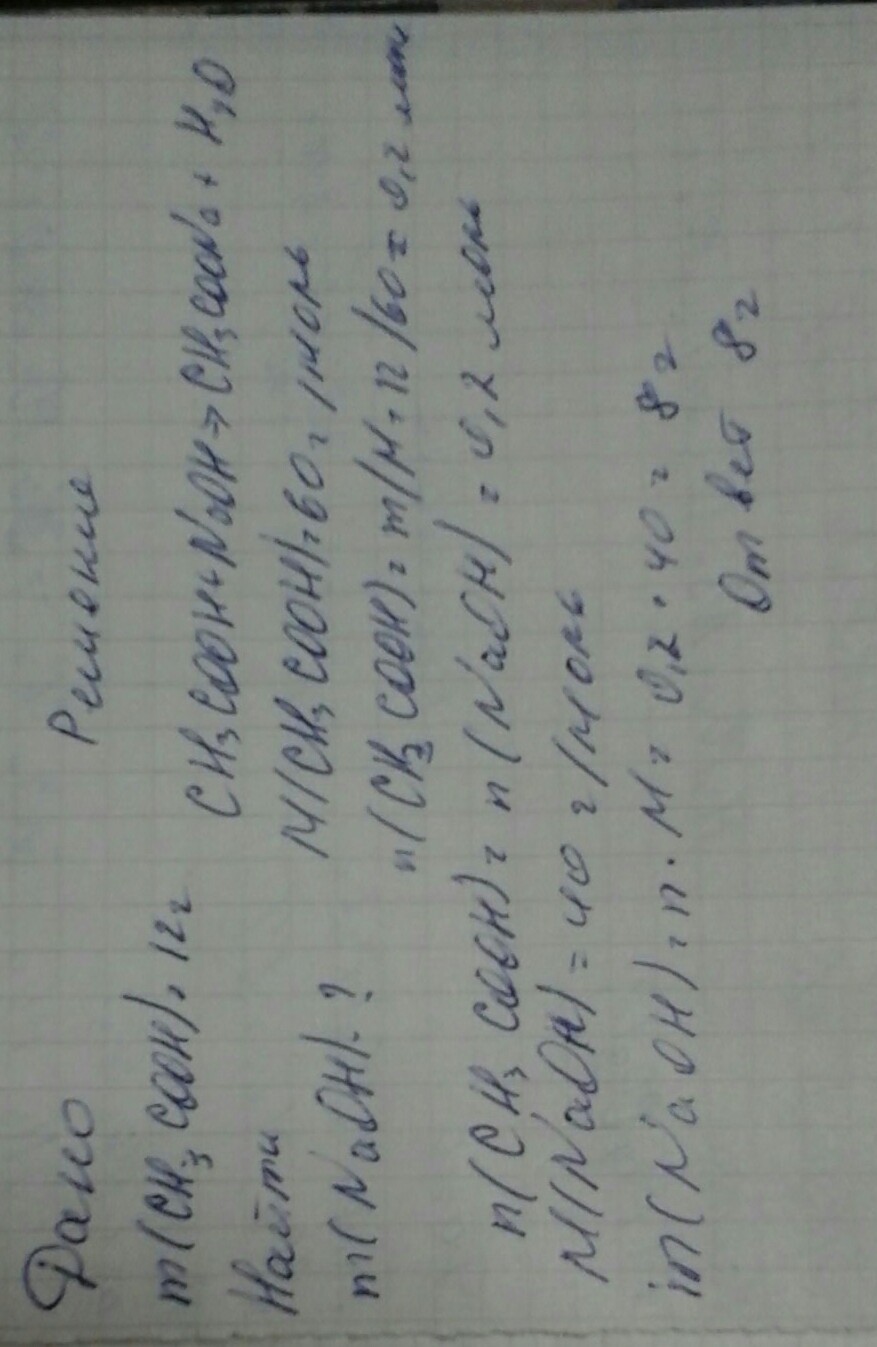 Дано
m(CH₃COOH)=12г
Найти
m(NaOH)-?
Решение
CH₃COOH+NaOH→CH₃COONa+H₂O
M(CH₃COOH)=60г/моль
n(CH₃COOH)=m/M=12/60=0,2 моль
n(CH₃COOH)=n(NaOH)=0,2 моль
M(NaOH)=40 г/моль
m(NaOH)=n·M=0,2·40=8г
Ответ 8г